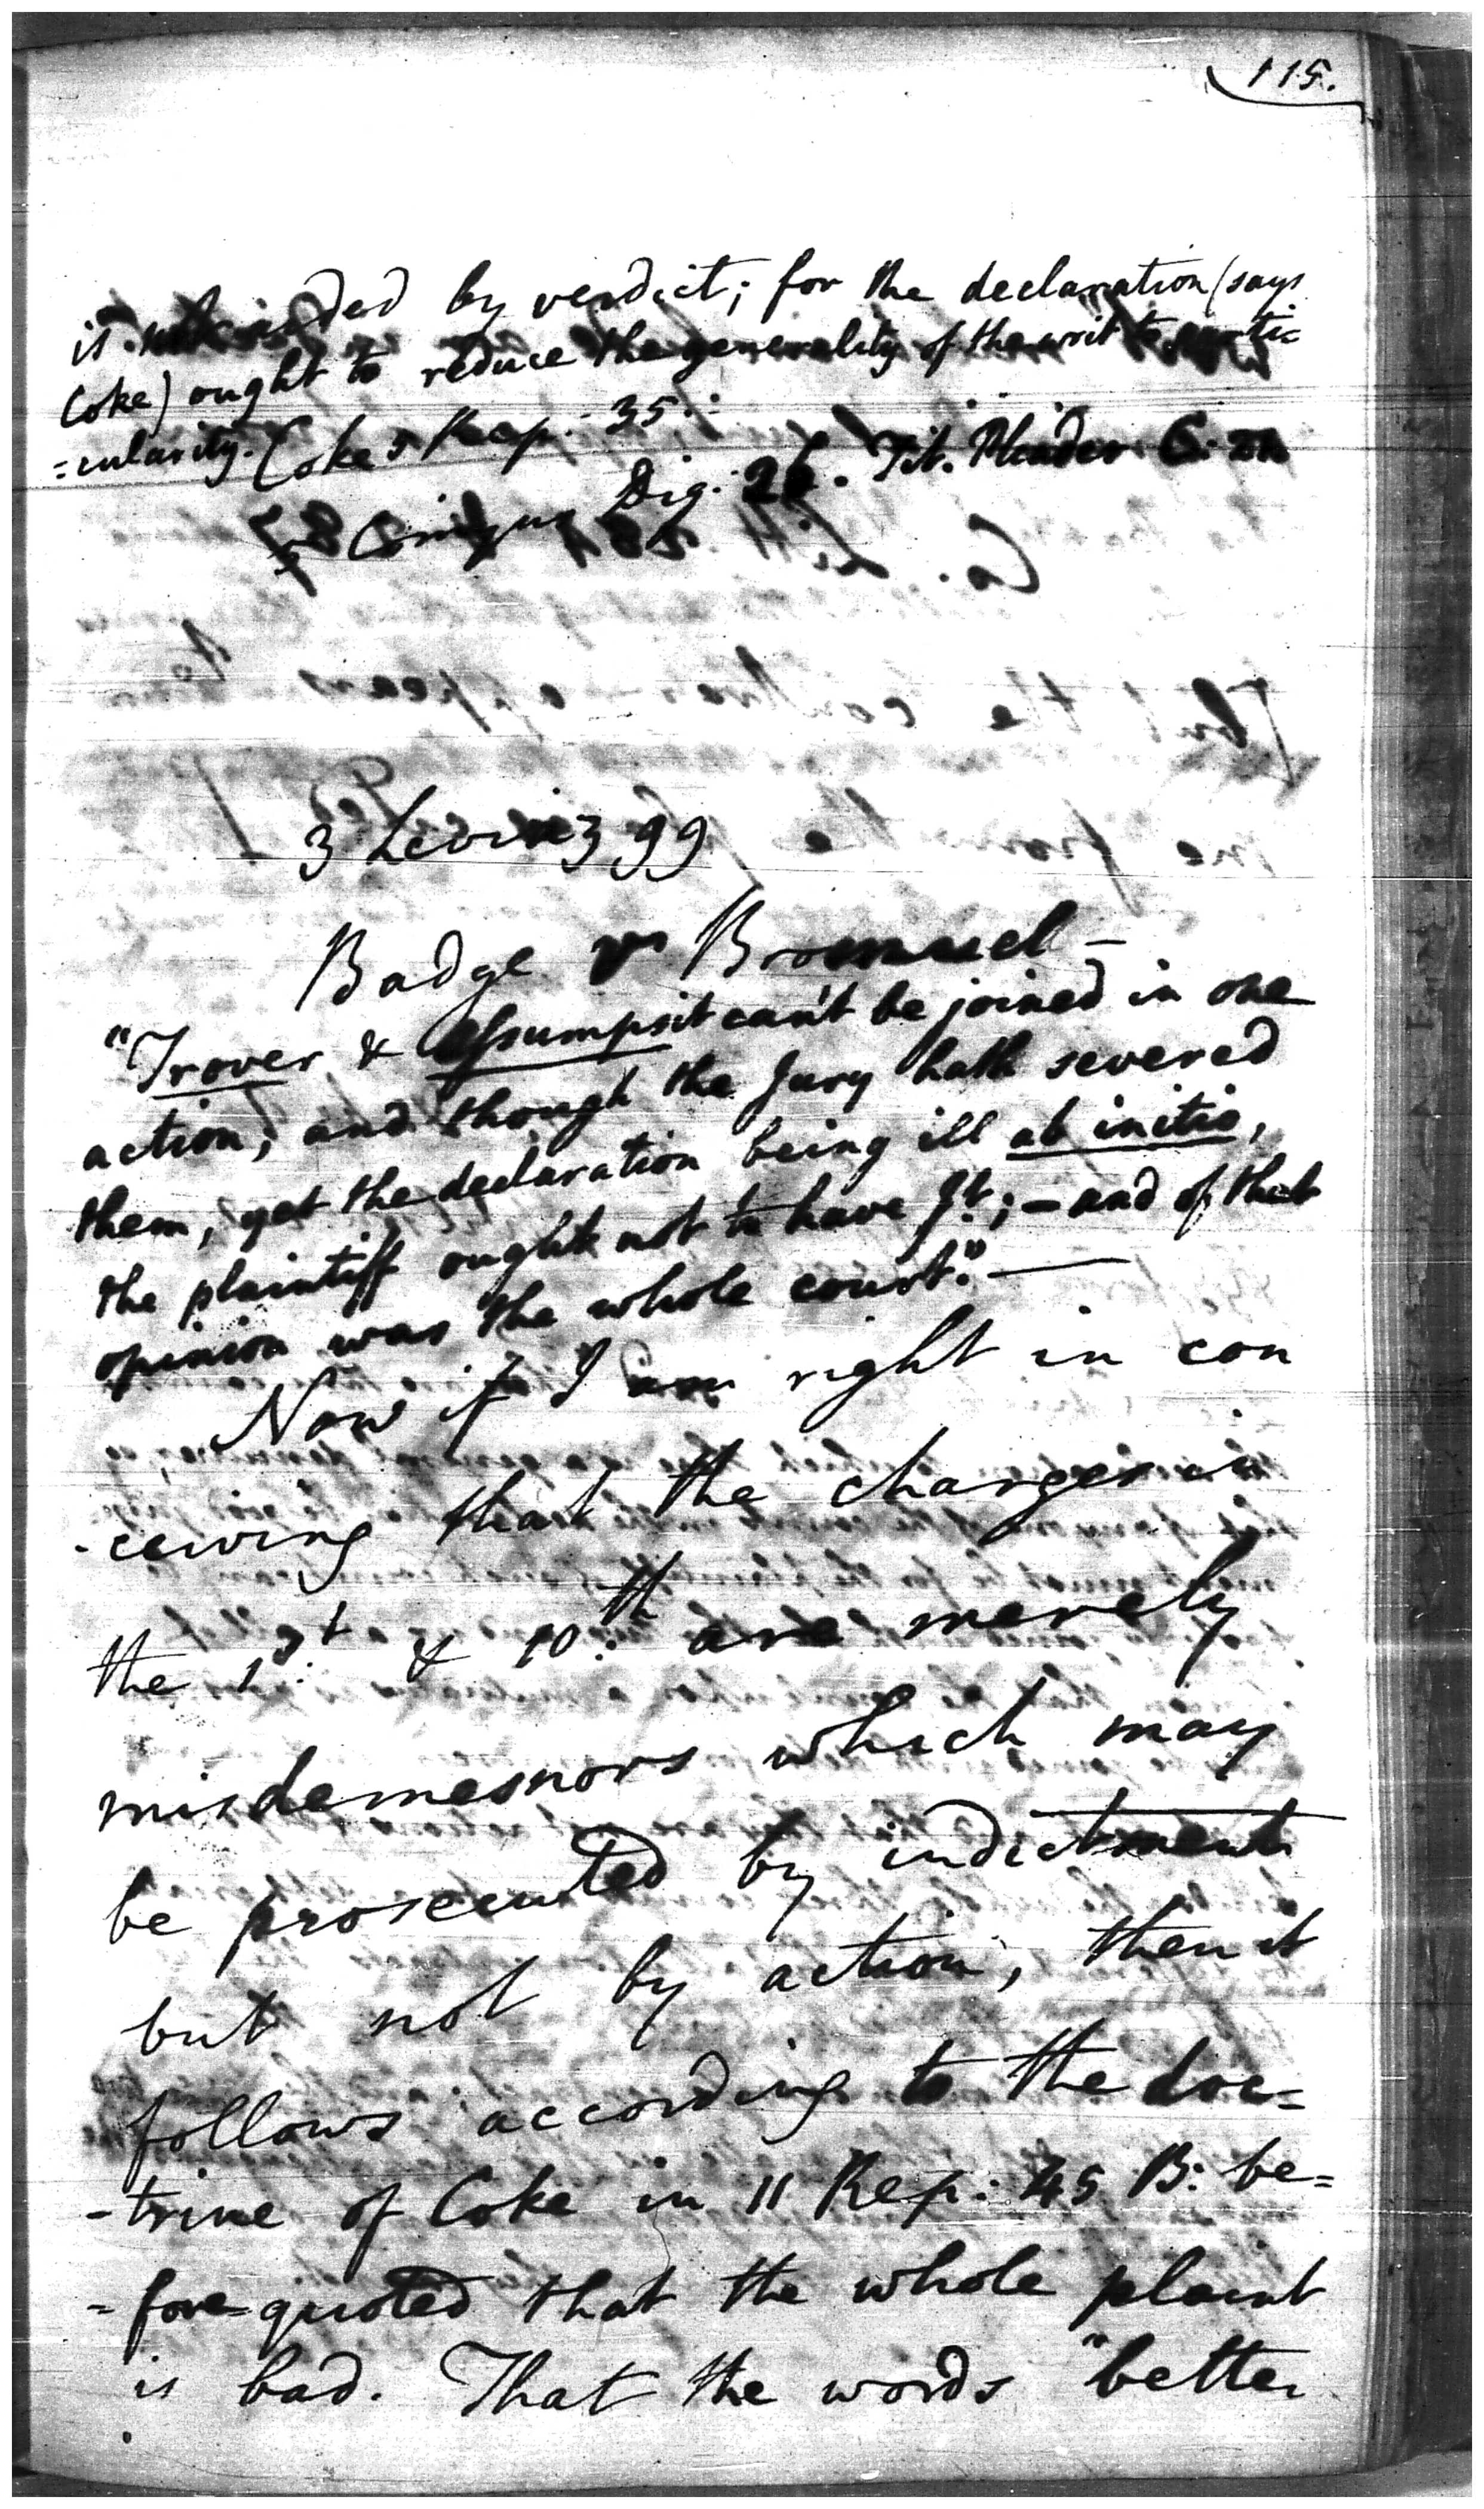 115.
is not aided by verdict; for the declaration (says
Coke) ought to reduce the generality of the writ to partic
=ularity. Coke 5 Rep: 35.
Comyns Dig. Tit. Pleader C.
3 Levinz 399
Badge vs Bromuel –
"Trover & assumpsit can't be joined in one
action; and though the Jury hath severed
them, yet the declaration being ill ab initio,
the plaintiff ought not to have Jt.; – and of that
opinion was the whole court." —
Now if I am right in con
-ceiving that the charges in
the 1st. & 10th. are merely
misdemesnors which may
be prosecuted by indictment
but not by action, then it
follows according to the doc=
-trine of Coke in 11 Rep: 45 B: be=
=fore quoted that the whole plaint
is bad. That the words "better